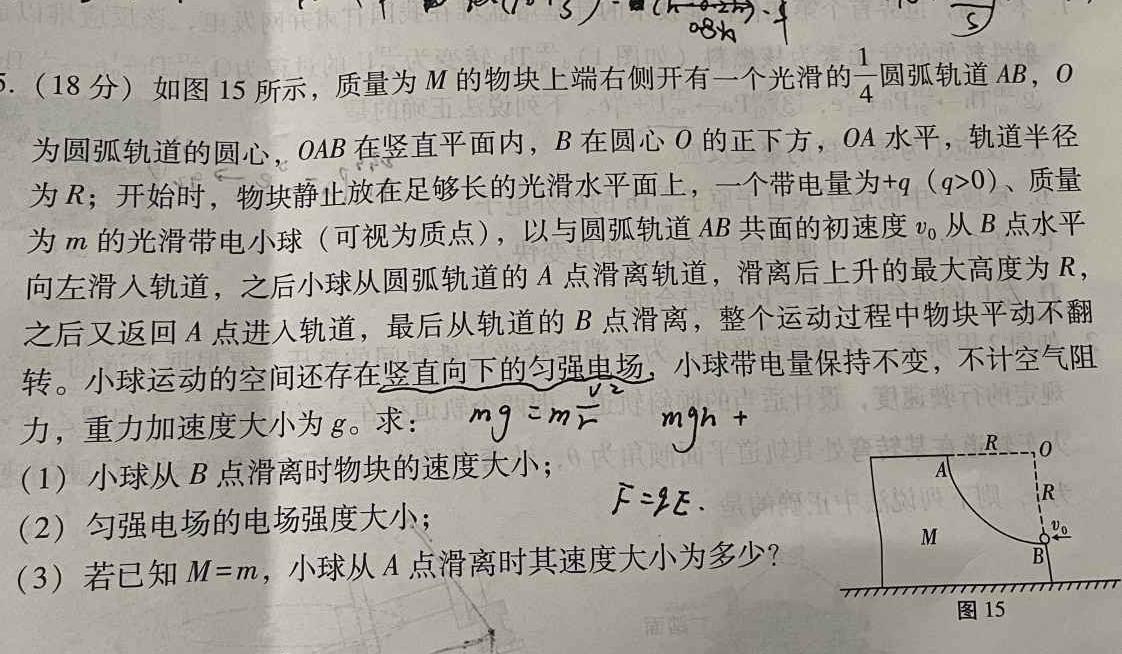 5.（18 分）如图 15 所示，质量为 M 的物块上端右侧开有一个光滑的1/4圆弧轨道 AB，O
为圆弧轨道的圆心，OAB 在竖直平面内，B 在圆心 O 的正下方，OA 水平，轨道半径
为 R；开始时，物块静止放在足够长的光滑水平面上，一个带电量为+q（q>0）、质量
为 m 的光滑带电小球（可视为质点），以与圆弧轨道 AB 共面的初速度 v₀ 从 B 点水平
向左滑入轨道，之后小球从圆弧轨道的 A 点滑离轨道，滑离后上升的最大高度为 R，
之后又返回 A 点进入轨道，最后从轨道的 B 点滑离，整个运动过程中物块平动不翻
转。小球运动的空间还存在竖直向下的匀强电场，小球带电量保持不变，不计空气阻
力，重力加速度大小为 g。求：
mg = m v²/r
mgh +
（1）小球从 B 点滑离时物块的速度大小；
F = qE.
（2）匀强电场的电场强度大小；
（3）若已知 M=m，小球从 A 点滑离时其速度大小为多少？
R
A
O
R
M
v₀
B
图 15